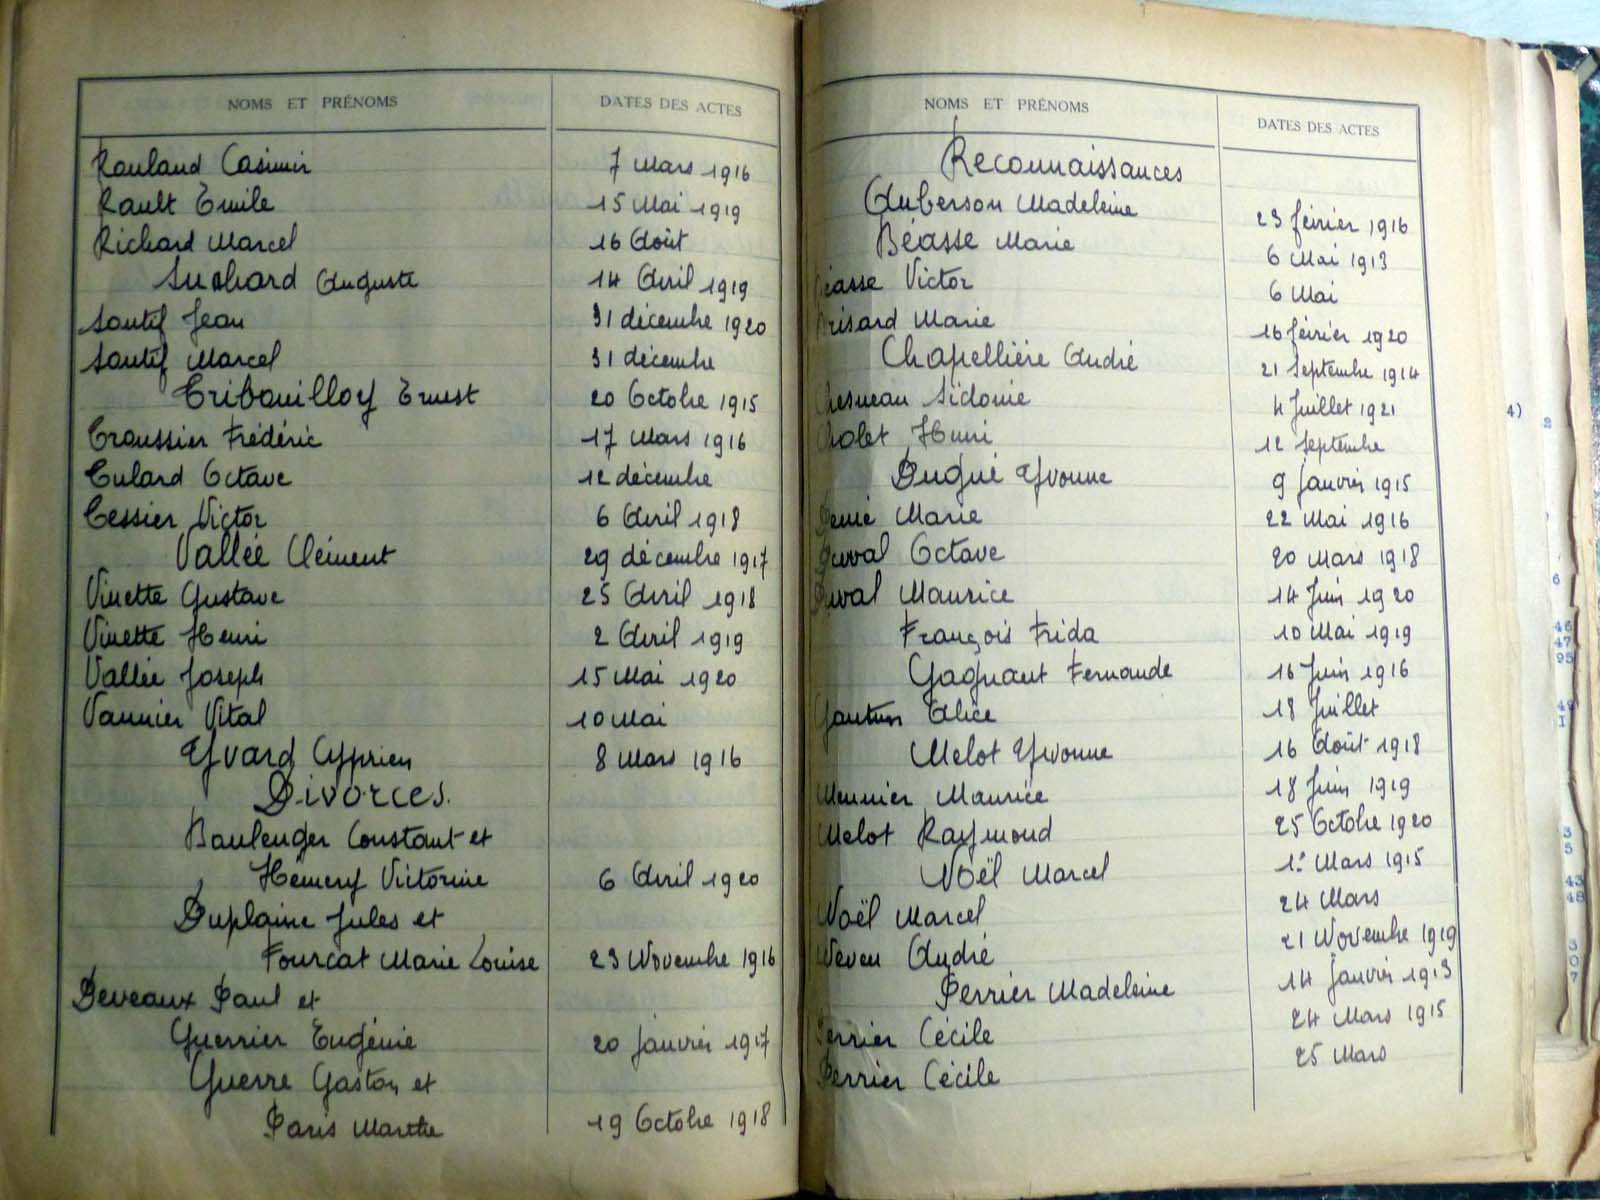 NOMS ET PRÉNOMS DATES DES ACTES
Rouland Casimir 7 Mars 1916
Rault Emile 15 Mai 1919
Richard Marcel 16 Août
Suchard Auguste 14 Avril 1919
Soutif Jean 31 décembre 1920
Soutif Marcel 31 décembre
Tribouilloy Ernest 20 Octobre 1915
Troussier Frédéric 17 Mars 1916
Tulard Octave 12 décembre
Tessier Victor 6 Avril 1918
Vallée Clément 29 décembre 1917
Vinette Gustave 25 Avril 1918
Vinette Henri 2 Avril 1919
Vallée Joseph 15 Mai 1920
Vannier Vital 10 Mai
Yvard Cyprien 8 Mars 1916
Divorces.
Boulenger Constant et
Hémery Victorine 6 Avril 1920
Duplaine Jules et
Fourcat Marie Louise 23 Novembre 1916
Deveaux Paul et
Guerrier Eugénie 20 Janvier 1917
Guerre Gaston et
Paris Marthe 19 Octobre 1918
NOMS ET PRÉNOMS DATES DES ACTES
Reconnaissances
Auberson Madeleine 23 février 1916
Béasse Marie 6 Mai 1913
Béasse Victor 6 Mai
Brisard Marie 16 février 1920
Chapellière André 21 Septembre 1914
Chesneau Sidonie 4 Juillet 1921
Cholet Henri 12 Septembre
Dugué Yvonne 9 Janvier 1915
Denié Marie 22 Mai 1916
Duval Octave 20 Mars 1918
Duval Maurice 14 Juin 1920
François Frida 10 Mai 1919
Gagnant Fernande 16 Juin 1916
Alice 18 Juillet
Melot Yvonne 16 Août 1918
Meunier Maurice 18 Juin 1919
Melot Raymond 25 Octobre 1920
Noël Marcel 1er Mars 1915
Noël Marcel 24 Mars
Neveu André 21 Novembre 1919
Perrier Madeleine 14 Janvier 1913
Perrier Cécile 24 Mars 1915
Perrier Cécile 25 Mars